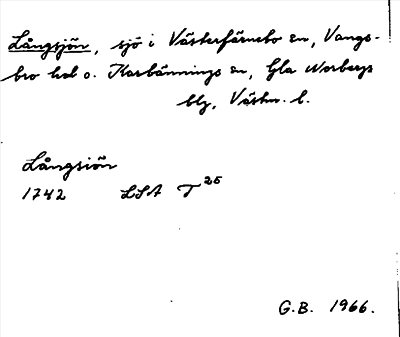 Långsjön, sjö i Västerfärnebo sn, Vangs-
bro hd o. Karbännings sn, Gla Norbergs
blg, Västm. l.
Långsiön
1742 LSA T 25
G.B. 1966.